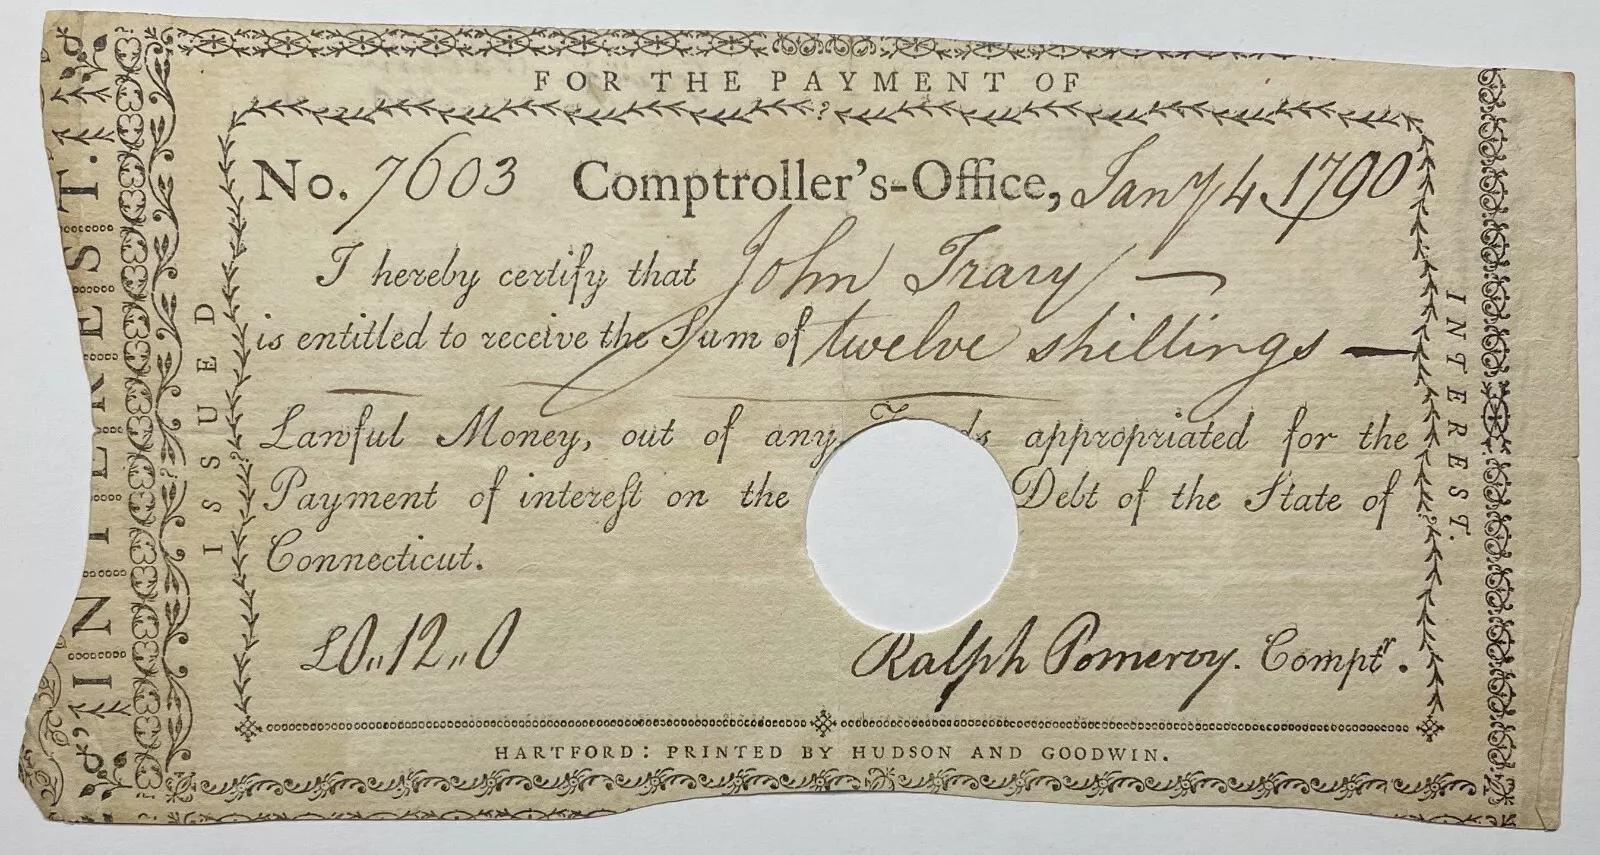 FOR THE PAYMENT OF
INTEREST.
ISSUED
No. 7603 Comptroller's-Office, Jany 4 1790
I hereby certify that John Tracy
is entitled to receive the Sum of twelve shillings
Lawful Money, out of any appropriated for the
Payment of intereſt on the Debt of the State of
Connecticut.
£0,,12,,0
Ralph Pomeroy. Comptr.
INTEREST.
HARTFORD: PRINTED BY HUDSON AND GOODWIN.